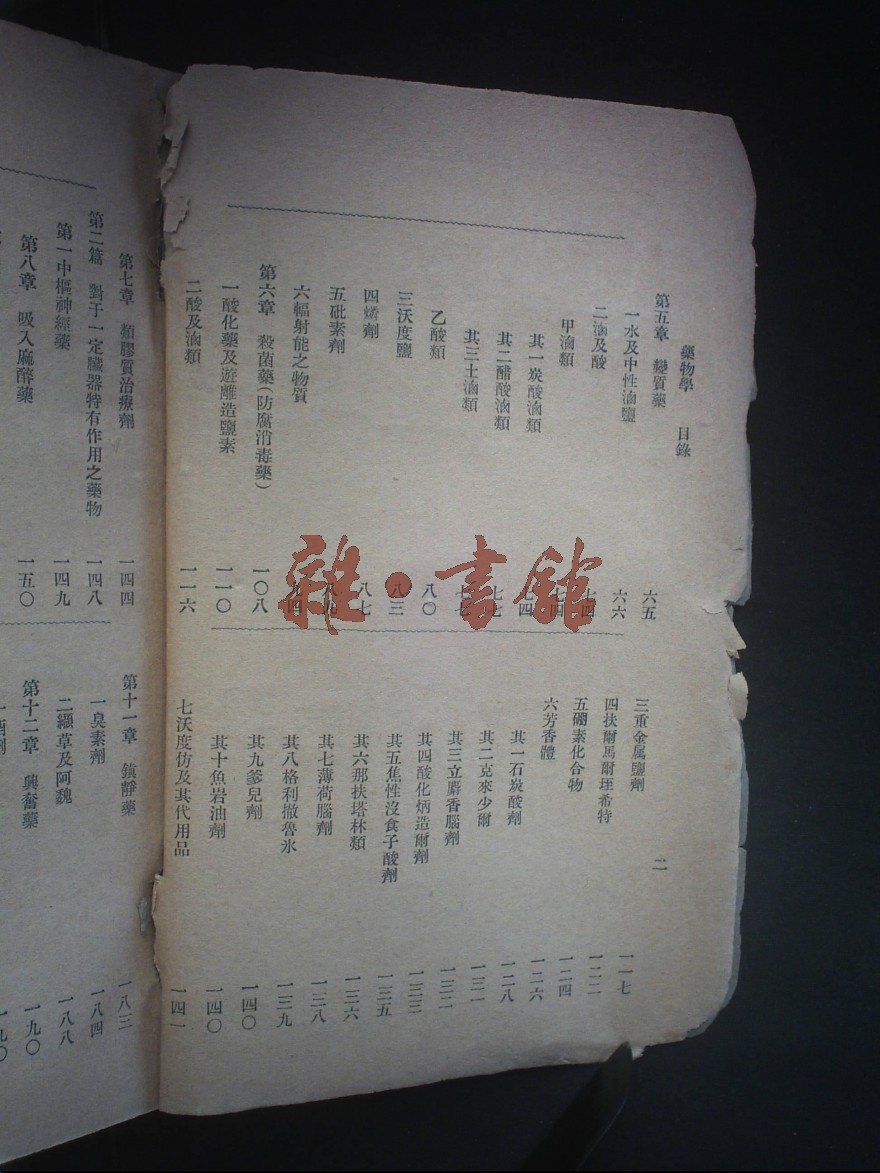 藥物學 目錄
二
第五章 變質藥 六五
一水及中性滷鹽 六六
二滷及酸 七四
甲滷類 七四
其一炭酸滷類 七四
其二醋酸滷類 七七
其三土滷類 七七
乙酸類 八〇
三沃度鹽 八三
四燐劑 八七
五砒素劑
六輻射能之物質
第六章 殺菌藥(防腐消毒藥) 一〇八
一酸化藥及遊離造鹽素 一一〇
二酸及滷類 一一六
三重金属鹽劑 一一七
四扶爾馬爾垤希特 一二二
五硼素化合物 一二四
六芳香體 一二六
其一石炭酸劑 一二八
其二克來少爾 一三一
其三立麝香腦劑 一三二
其四酸化炳造爾劑 一三三
其五焦性沒食子酸劑 一三五
其六那扶塔林類 一三六
其七薄荷腦劑 一三八
其八格利撤魯氷 一三九
其九爹兒劑 一四〇
其十魚岩油劑 一四〇
七沃度仿及其代用品 一四一
第七章 類膠質治療劑 一四四
第二篇 對于一定臟器特有作用之藥物 一四八
第一中樞神經藥 一四九
第八章 吸入麻醉藥 一五〇
第十一章 鎮靜藥 一八三
一臭素劑 一八四
二纈草及阿魏 一八八
第十二章 興奮藥 一九〇
一酒劑 一九〇
雜·書館